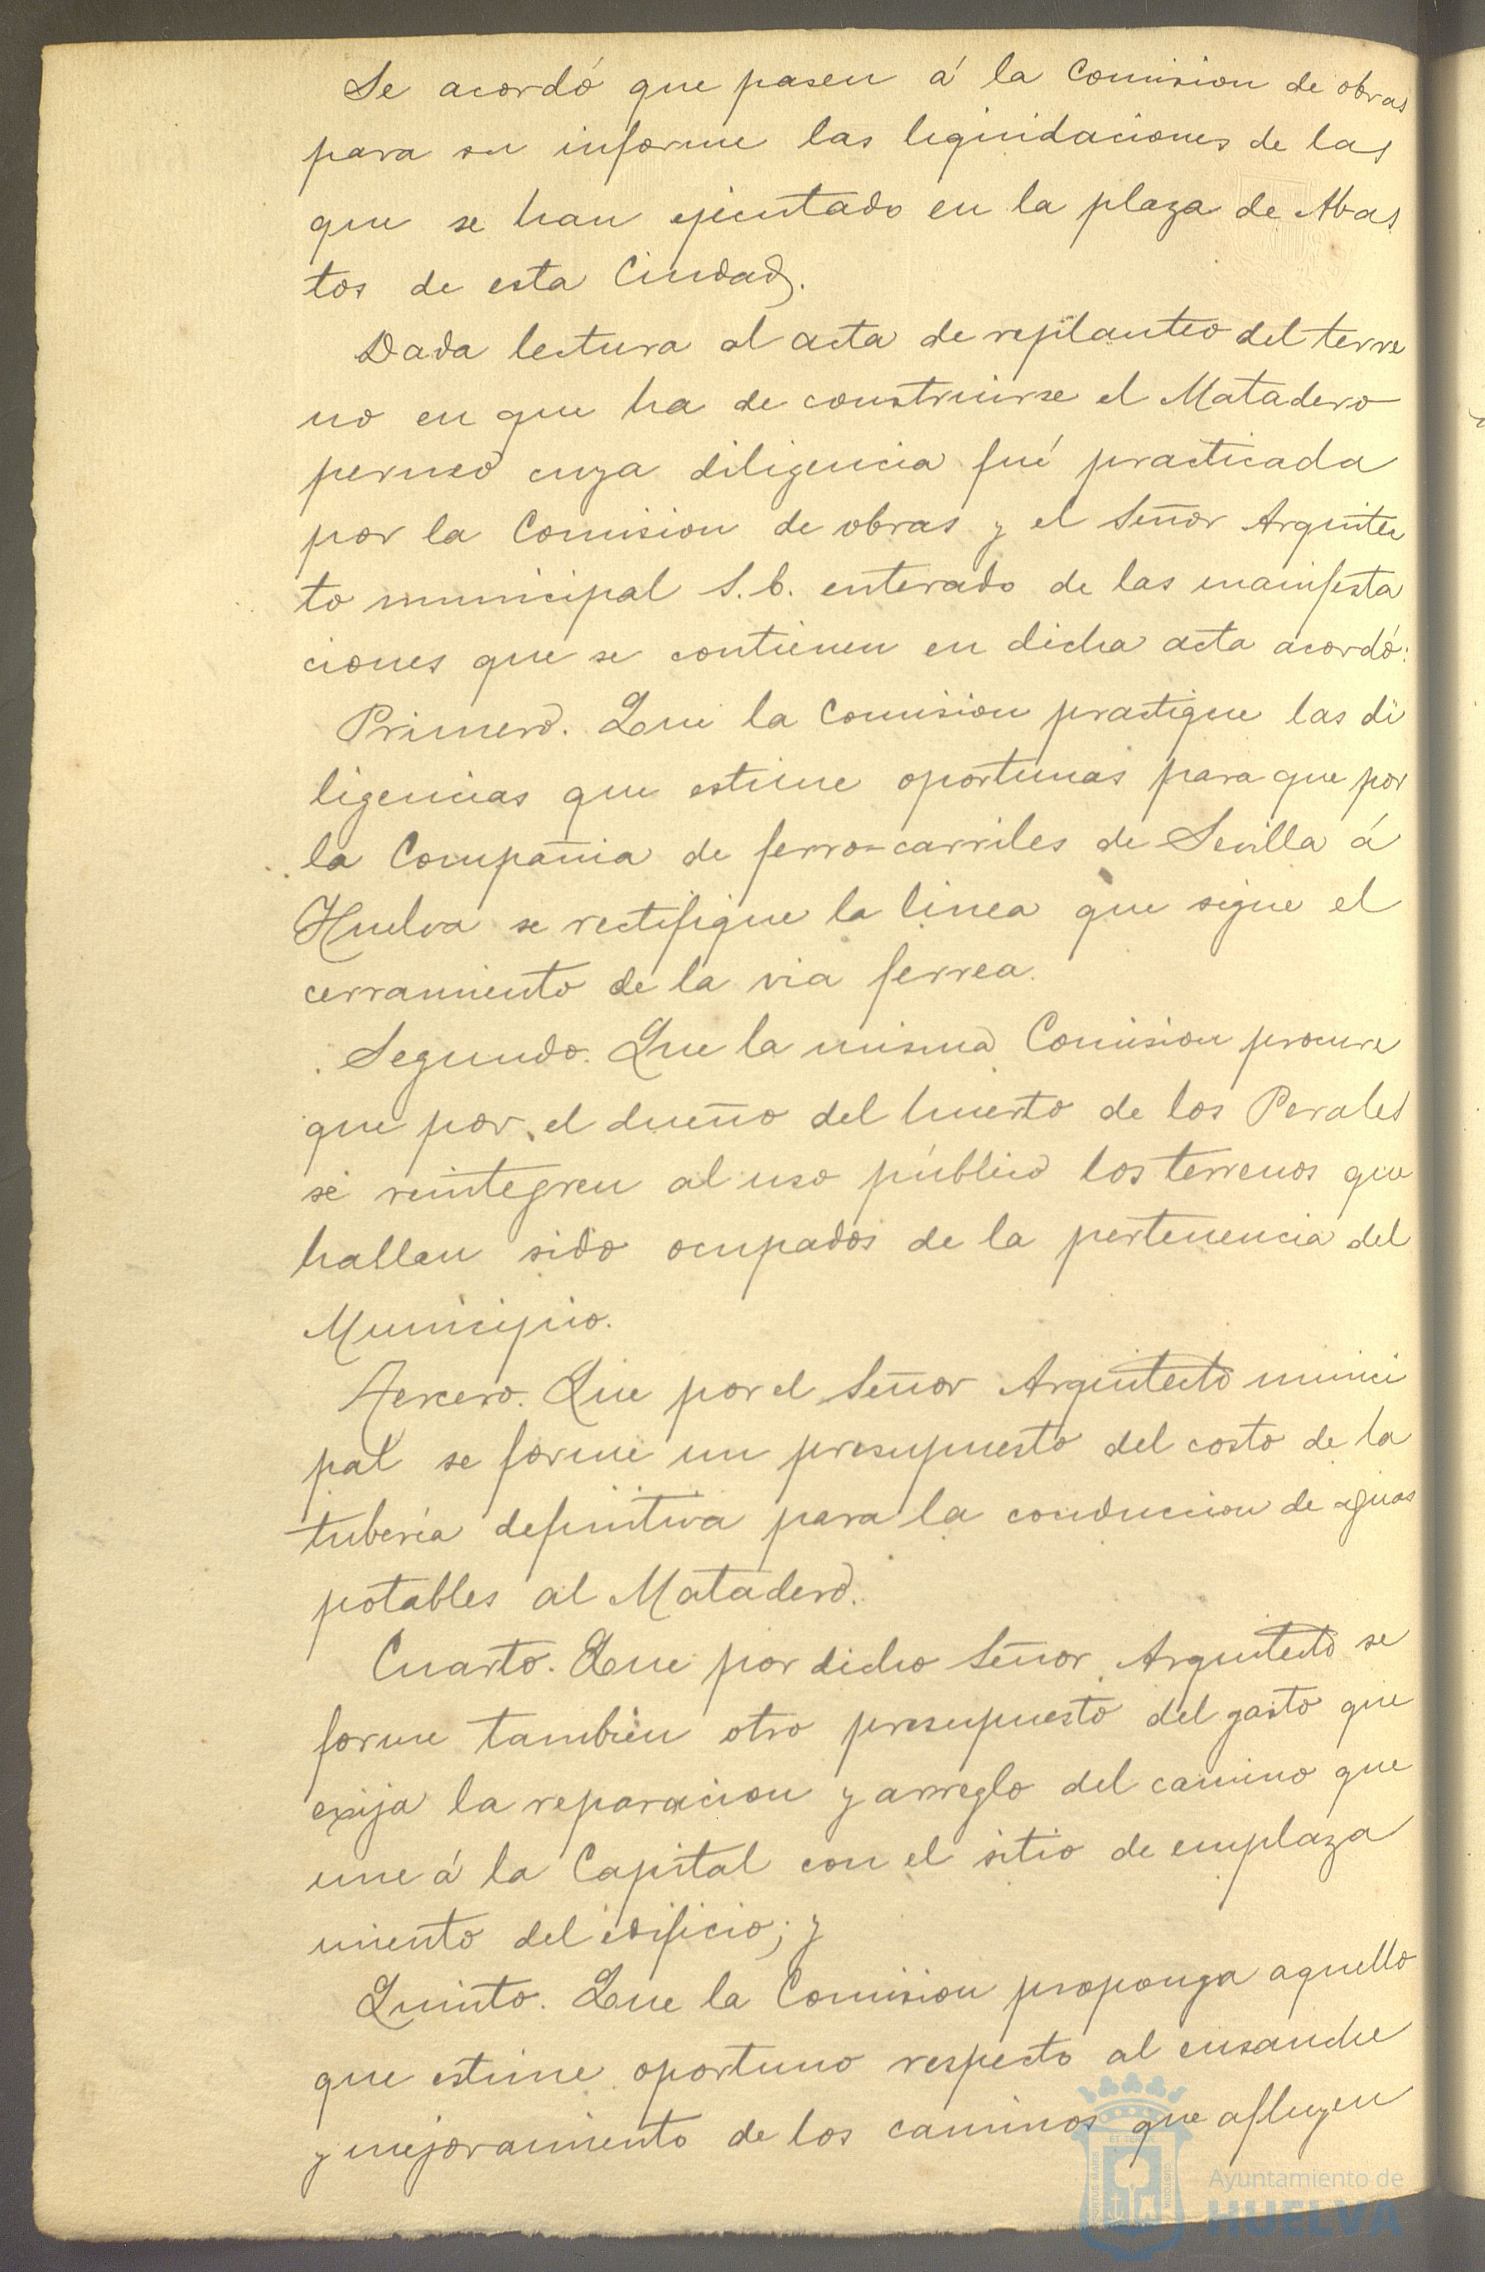 Se acordó que pasen á la Comision de obras
para su informe las liquidaciones de las
que se han ejecutado en la plaza de Abas
tos de esta Ciudad.
Dada lectura al acta de replanteo del terre
no en que ha de construirse el Matadero
peruzo cuya diligencia fué practicada
por la Comision de obras y el Señor Arquitec
to municipal S. E. enterado de las manifesta
ciones que se contienen en dicha acta acordó:
Primero. Que la Comision practique las di
ligencias que estime oportunas para que por
la Compañia de ferro-carriles de Sevilla á
Huelva se rectifique la linea que sigue el
cerramiento de la via ferrea.
Segundo. Que la misma Comision procure
que por el dueño del huerto de los Perales
se reintegren al uso público los terrenos que
hallan sido ocupados de la pertenencia del
Municipio.
Tercero. Que por el Señor Arquitecto munici
pal se forme un presupuesto del costo de la
tuberia definitiva para la conduccion de aguas
potables al Matadero.
Cuarto. Que por dicho Señor Arquitecto se
forme tambien otro presupuesto del gasto que
exija la reparacion y arreglo del camino que
une á la Capital con el sitio de emplaza
miento del edificio; y
Quinto. Que la Comision proponga aquello
que estime oportuno respecto al ensanche
y mejoramiento de los caminos que afluyen
Ayuntamiento de
HUELVA